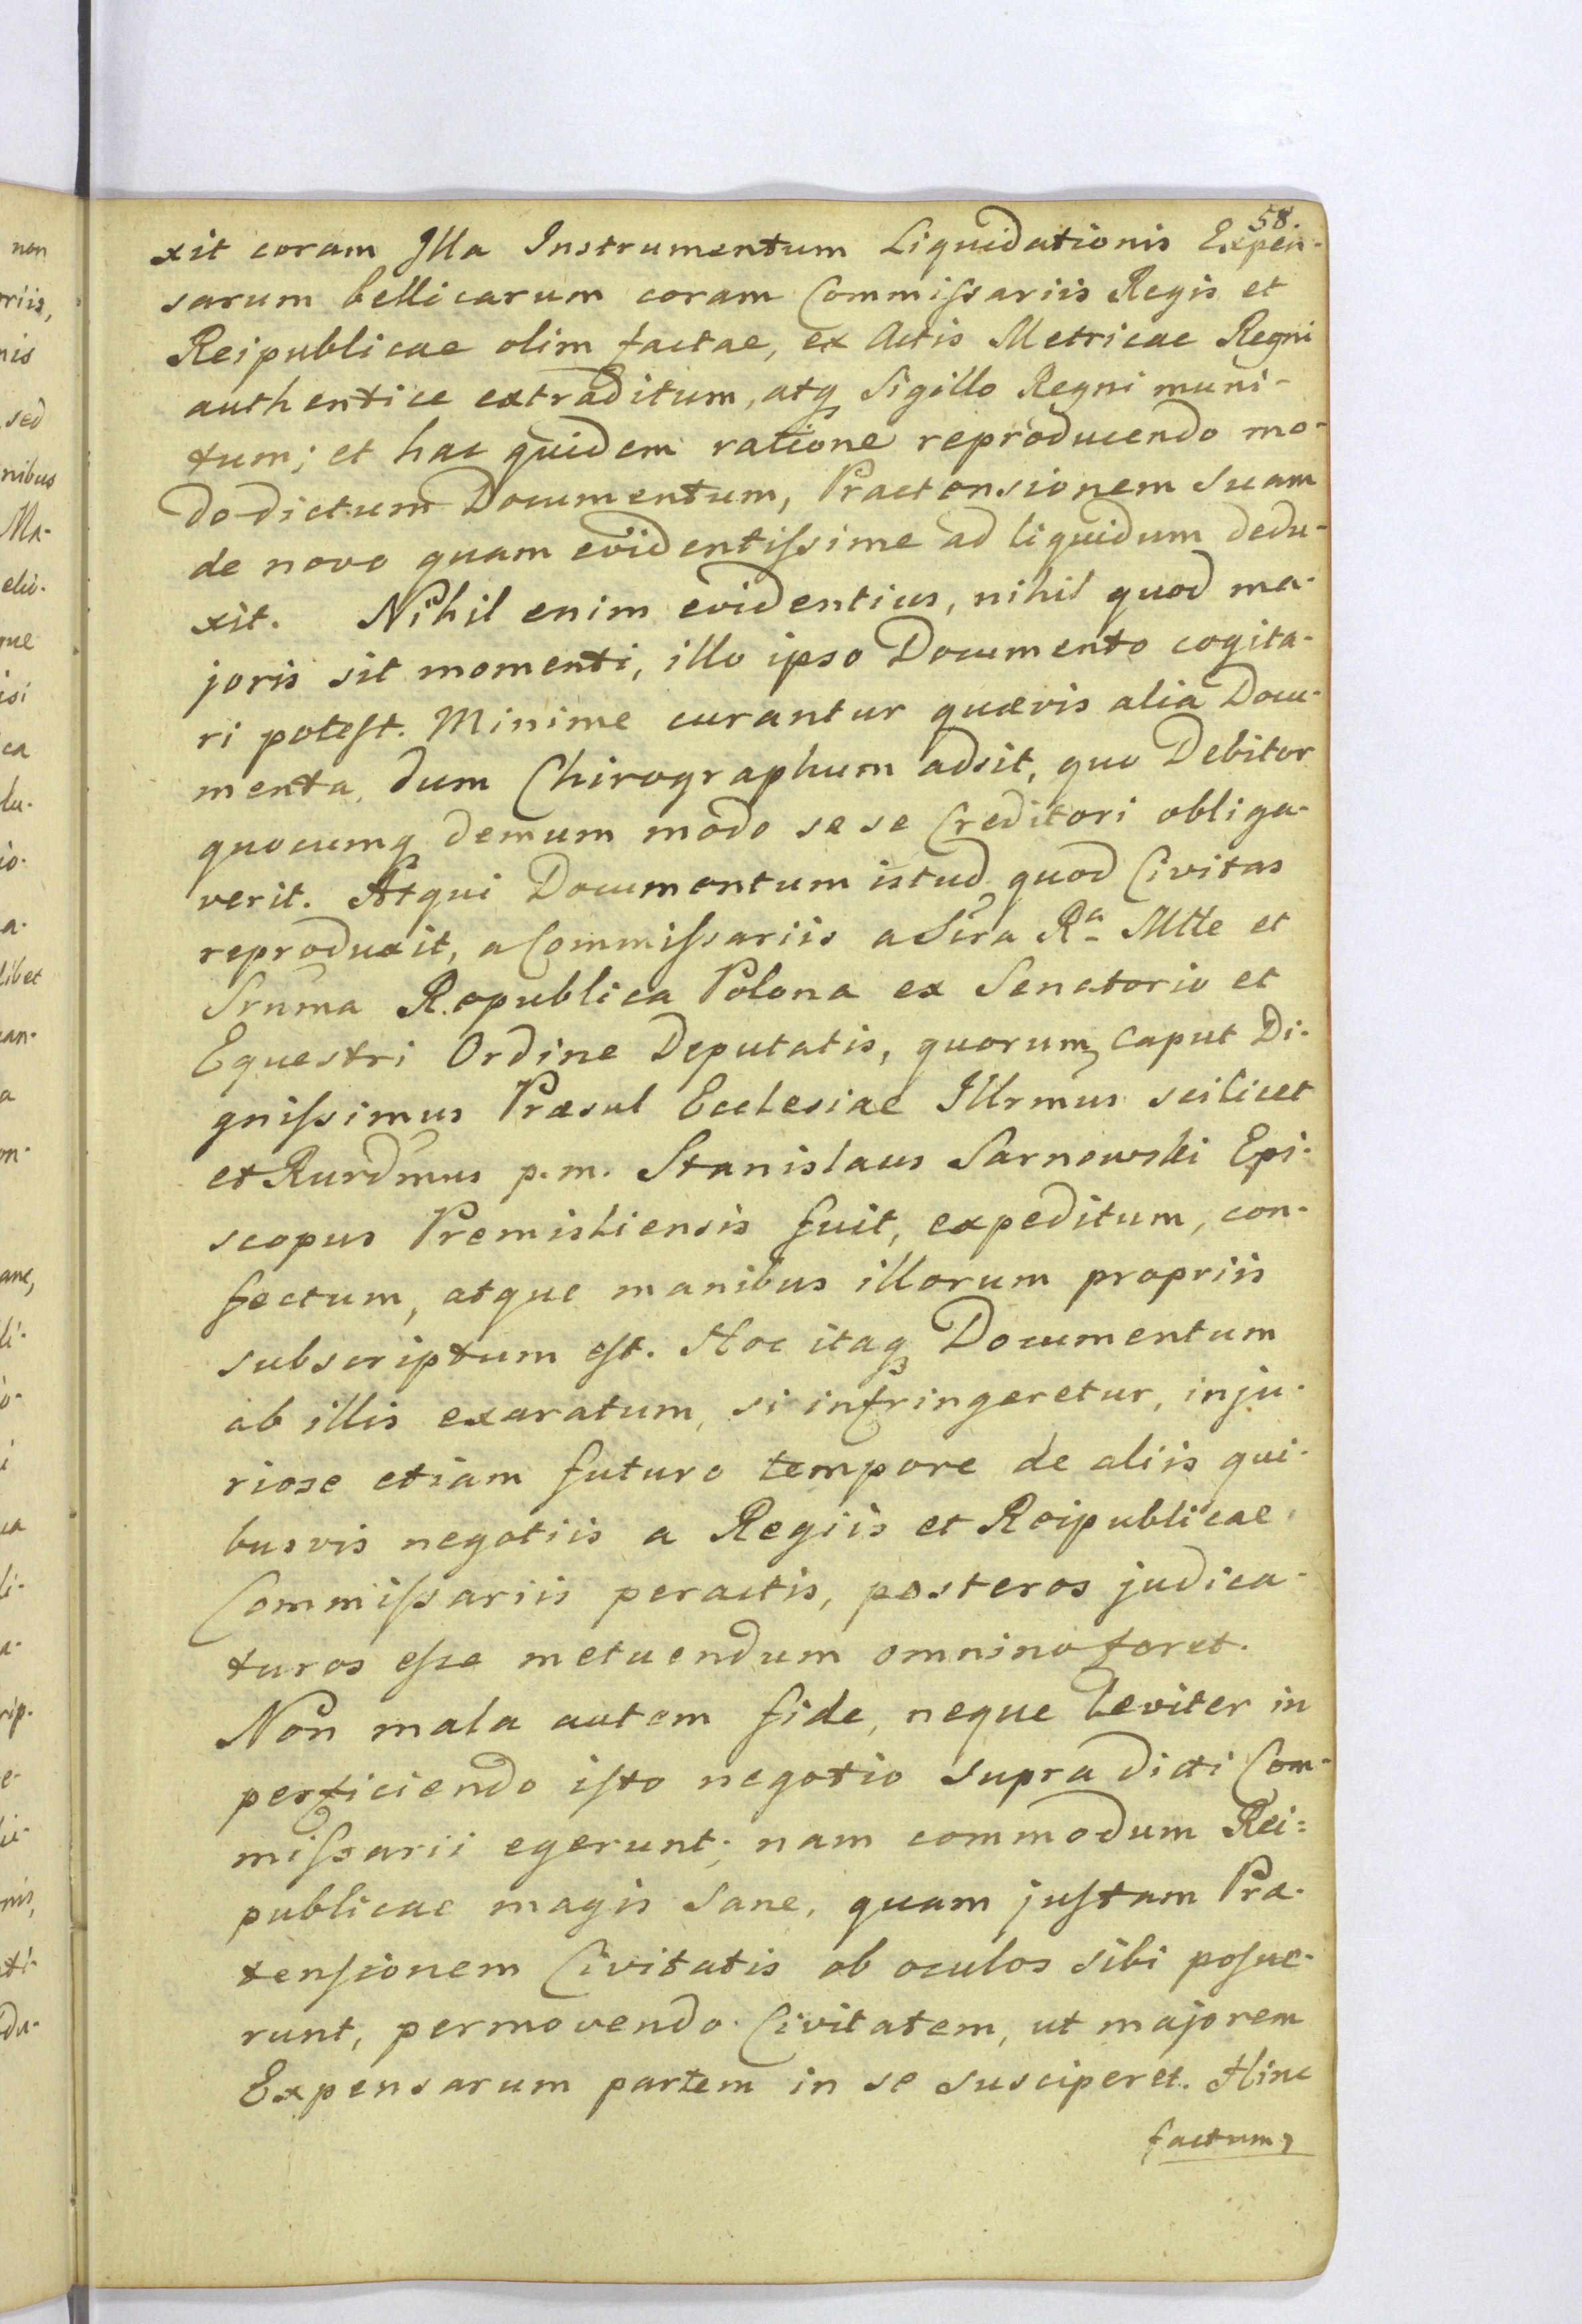 58.
xit coram Illa Instrumentum Liquidationis Expen-
sarum bellicarum coram Commiſsariis Regis et
Reipublicae olim factae, ex Actis Metricae Regni
authentice extraditum, atq Sigillo Regni muni-
tum; et hac quidem ratione reproducendo mo-
do dictum Documentum, Praetensionem suam
de novo quam evidentiſsime ad liquidum dedu-
xit. Nihil enim evidentius, nihil quod ma-
joris sit momenti, illo ipso Documento cogita-
ri poteſt. Minime curantur quævis alia Docu-
menta, dum Chirographum adsit, quo Debitor
quocumq demum modo sese Creditori obliga-
verit. Atqui Documentum istud quod Civitas
reproduxit, a Commiſsariis a Sera Ra Mtte et
Srnma Republica Polona ex Senatorio et
Equestri Ordine Deputatis, quorum Caput Di-
gniſsimus Præsul Ecclesiae Illrmus scilicet
et Rurdmus p.m. Stanislaus Sarnowski Epi-
scopus Premisliensis fuit, expeditum, con-
fectum, atque manibus illorum propriis
subscriptum eſt. Hoc itaq Documentum
ab illis exaratum, si infringeretur, inju-
riose etiam futuro tempore de aliis qui-
busvis negotiis a Regiis et Reipublicae
Commiſsariis peractis, posteros judica-
turos eſse metuendum omnino foret.
Non mala autem fide, neque leviter in
perficiendo iſto negotio supra dicti Com-
miſsarii egerunt; nam commodum Rei=
publicae magis sane, quam juſtam Præ-
tenſionem Civitatis ob oculos sibi poſue-
runt, permovendo Civitatem, ut majorem
Expensarum partem in se susciperet. Hinc
factum,